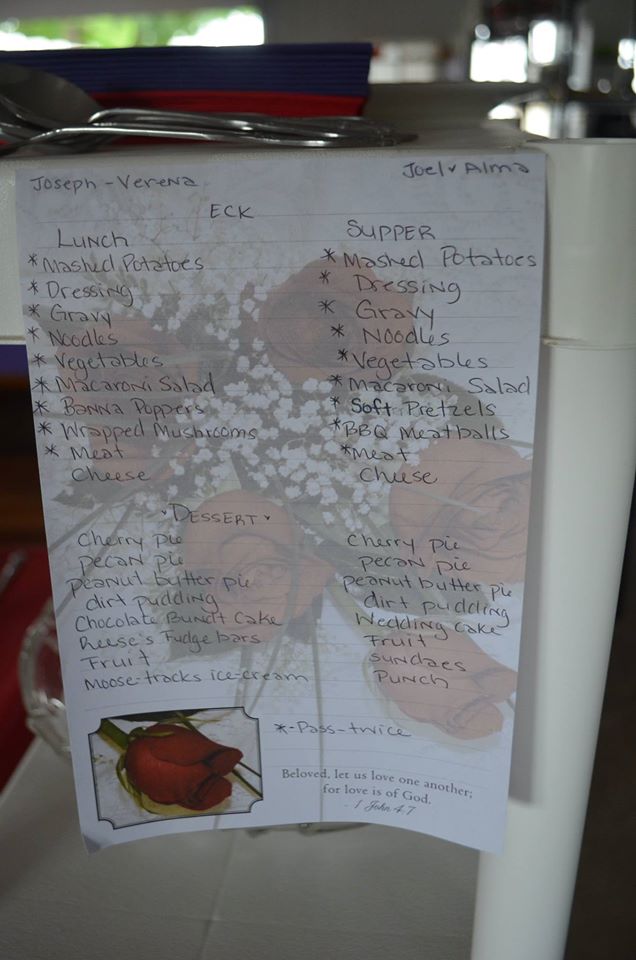 Joseph - Verena
Joel & Alma
ECK
Lunch
* Mashed Potatoes
* Dressing
* Gravy
* Noodles
* Vegetables
* Macaroni Salad
* Banna Poppers
* Wrapped Mushrooms
* Meat
Cheese
Supper
* Mashed Potatoes
* Dressing
* Gravy
* Noodles
* Vegetables
* Macaroni Salad
* Soft Pretzels
* BBQ Meatballs
* Meat
Cheese
Dessert
Cherry pie
pecan pie
peanut butter pie
dirt pudding
Chocolate Bundt Cake
Reese's Fudge bars
Fruit
Moose-tracks ice-cream
Cherry pie
pecan pie
peanut butter pie
dirt pudding
Wedding Cake
Fruit
sundaes
Punch
*-Pass-twice
Beloved, let us love one another;
for love is of God.
- 1 John 4:7